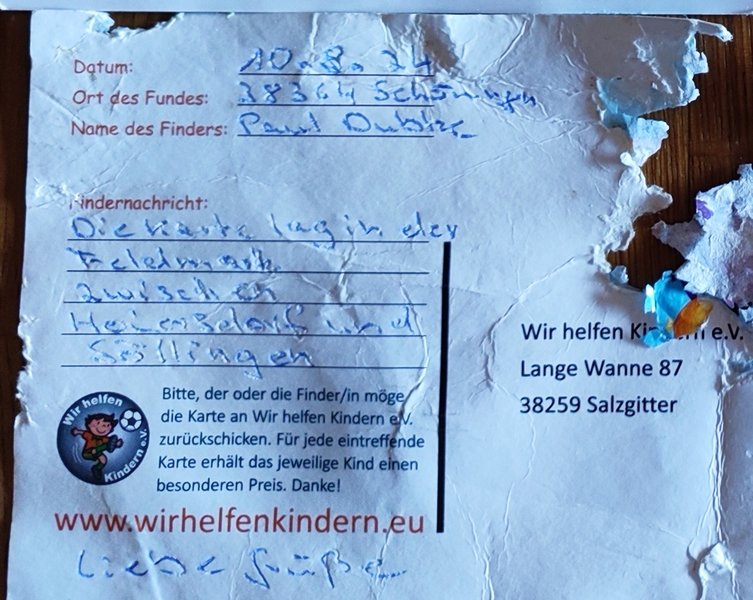 Datum: 10.8.24
Ort des Fundes: 38364 Schöningen
Name des Finders: Paul
Findernachricht:
Die Karte lag in der
Feldmark
zwischen
Hoiersdorf und
Söllingen
Wir helfen
Kindern e.V.
Bitte, der oder die Finder/in möge
die Karte an Wir helfen Kindern e.V.
zurückschicken. Für jede eintreffende
Karte erhält das jeweilige Kind einen
besonderen Preis. Danke!
www.wirhelfenkindern.eu
Liebe Grüße
Wir helfen Kindern e.V.
Lange Wanne 87
38259 Salzgitter